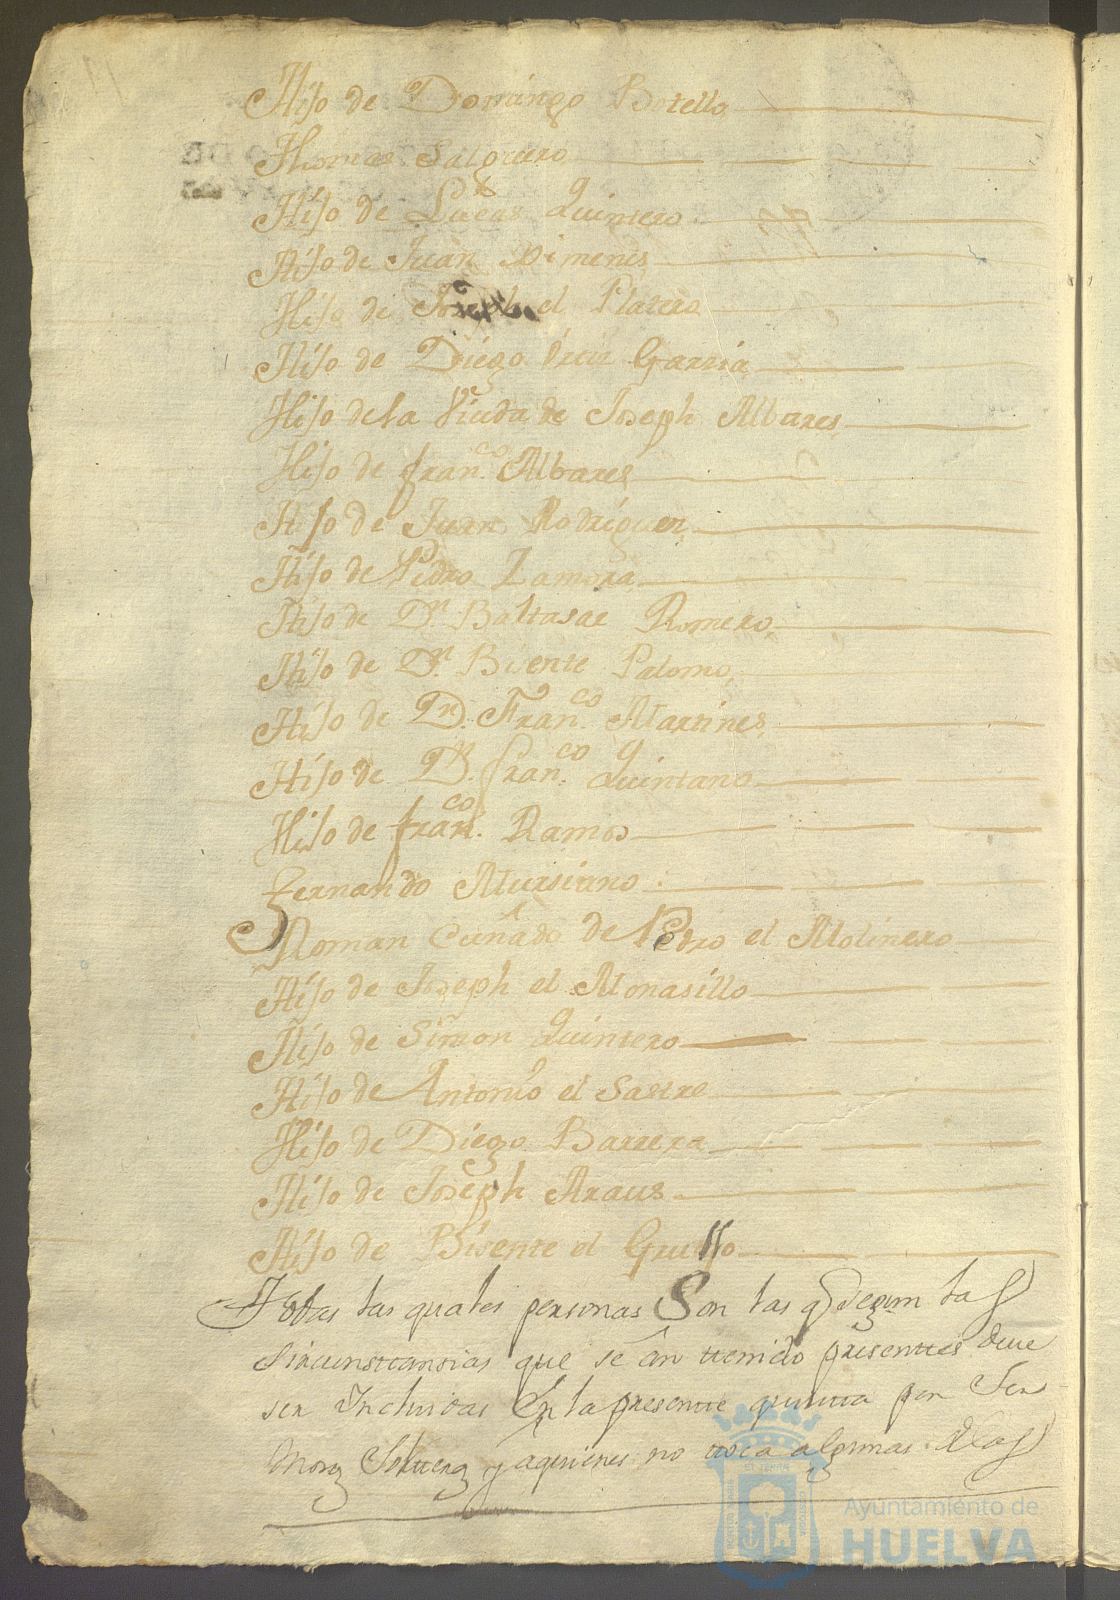 Hijo de Domingo Botello
Thomas Salguero
Hijo de Lucas Quintero
Hijo de Juan Ximenes
Hijo de Joseph el Platero
Hijo de Diego Garsia
Hijo de la Viuda de Joseph Albares
Hijo de fran.co Albares
Hijo de Juan Rodriguez
Hijo de Pedro Zamora
Hijo de Dn. Baltasar Romero
Hijo de Dn. Bisente Palomo
Hijo de Dn. Fran.co Martines
Hijo de Dn. fran.co Quintano
Hijo de fran.co Ramos
Fernando Mursiano
Roman Cuñado de Pedro el Molinero
Hijo de Joseph el Monasillo
Hijo de Simon Quintero
Hijo de Antonio el Sastre
Hijo de Diego Barrera
Hijo de Joseph Araus
Hijo de Bisente el Grullo
Todas las quales personas Son las q segun las
Sircunstansias que se an tenido presentes deve
ser Incluidas En la presente quinta por Ser
Mozos Solteros y aquienes no toca algunas de las
Ayuntamiento de
HUELVA